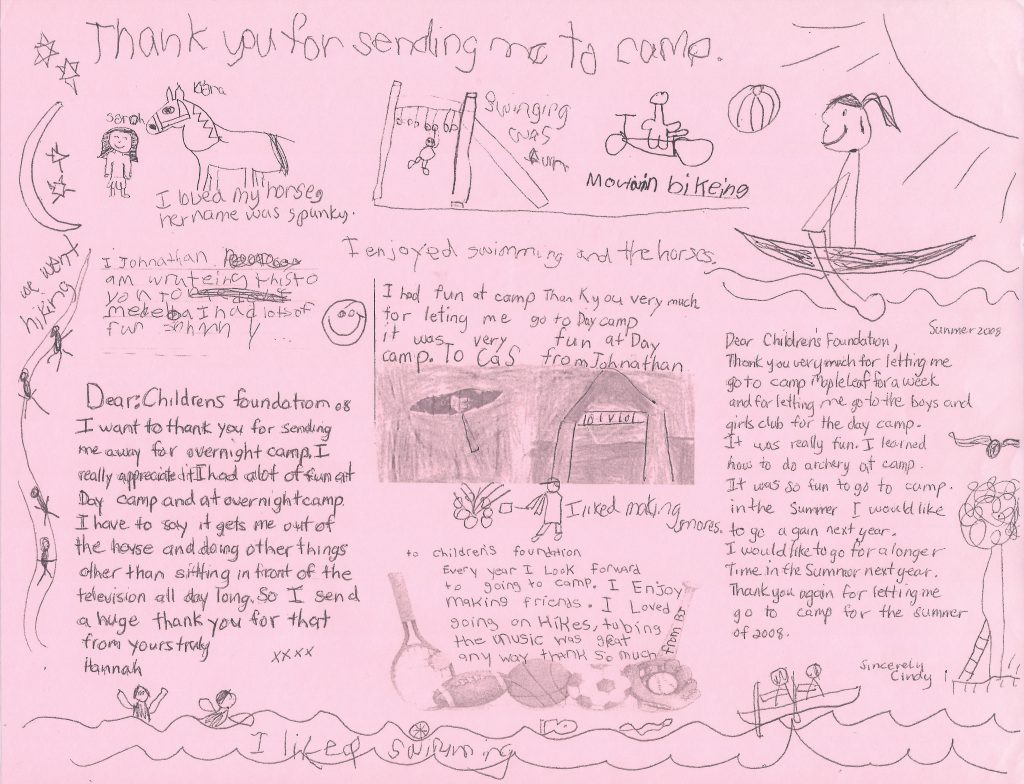 Thank you for sending me to camp.
Sarah
I loved my horse,
her name was spunky.
Swinging
was
fun
Moutain bikeing
I enjoyed swimming and the horses.
we went
hiking
I Johnathan
am wrateing this to
you to
I had lots of
fun
I had fun at camp Thank you very much
for leting me go to Day camp
it was very fun at Day
camp. To CaS from Johnathan
Dear: Childrens foundation 08
I want to thank you for sending
me away for overnight camp. I
really appreciated it I had alot of fun at
Day camp and at overnight camp
I have to say it gets me out of
the house and doing other things
other than sitting in front of the
television all day long. So I send
a huge thank you for that
from yours truly
Hannah xxxx
I liked making
smores.
to children's foundation
Every year I Look forward
to going to camp. I Enjoy
making friends. I Loved
going on Hikes, tubing
the music was great
any way thank so much
from Bo
Summer 2008
Dear Children's Foundation,
Thank you very much for letting me
go to camp Mapleleaf for a week
and for letting me go to the boys and
girls club for the day camp.
It was really fun. I learned
how to do archery at camp.
It was so fun to go to camp.
in the Summer I would like
to go a gain next year.
I would like to go for a longer
Time in the Summer next year.
Thank you again for letting me
go to camp for the summer
of 2008.
Sincerely
Cindy !
I liked swimming